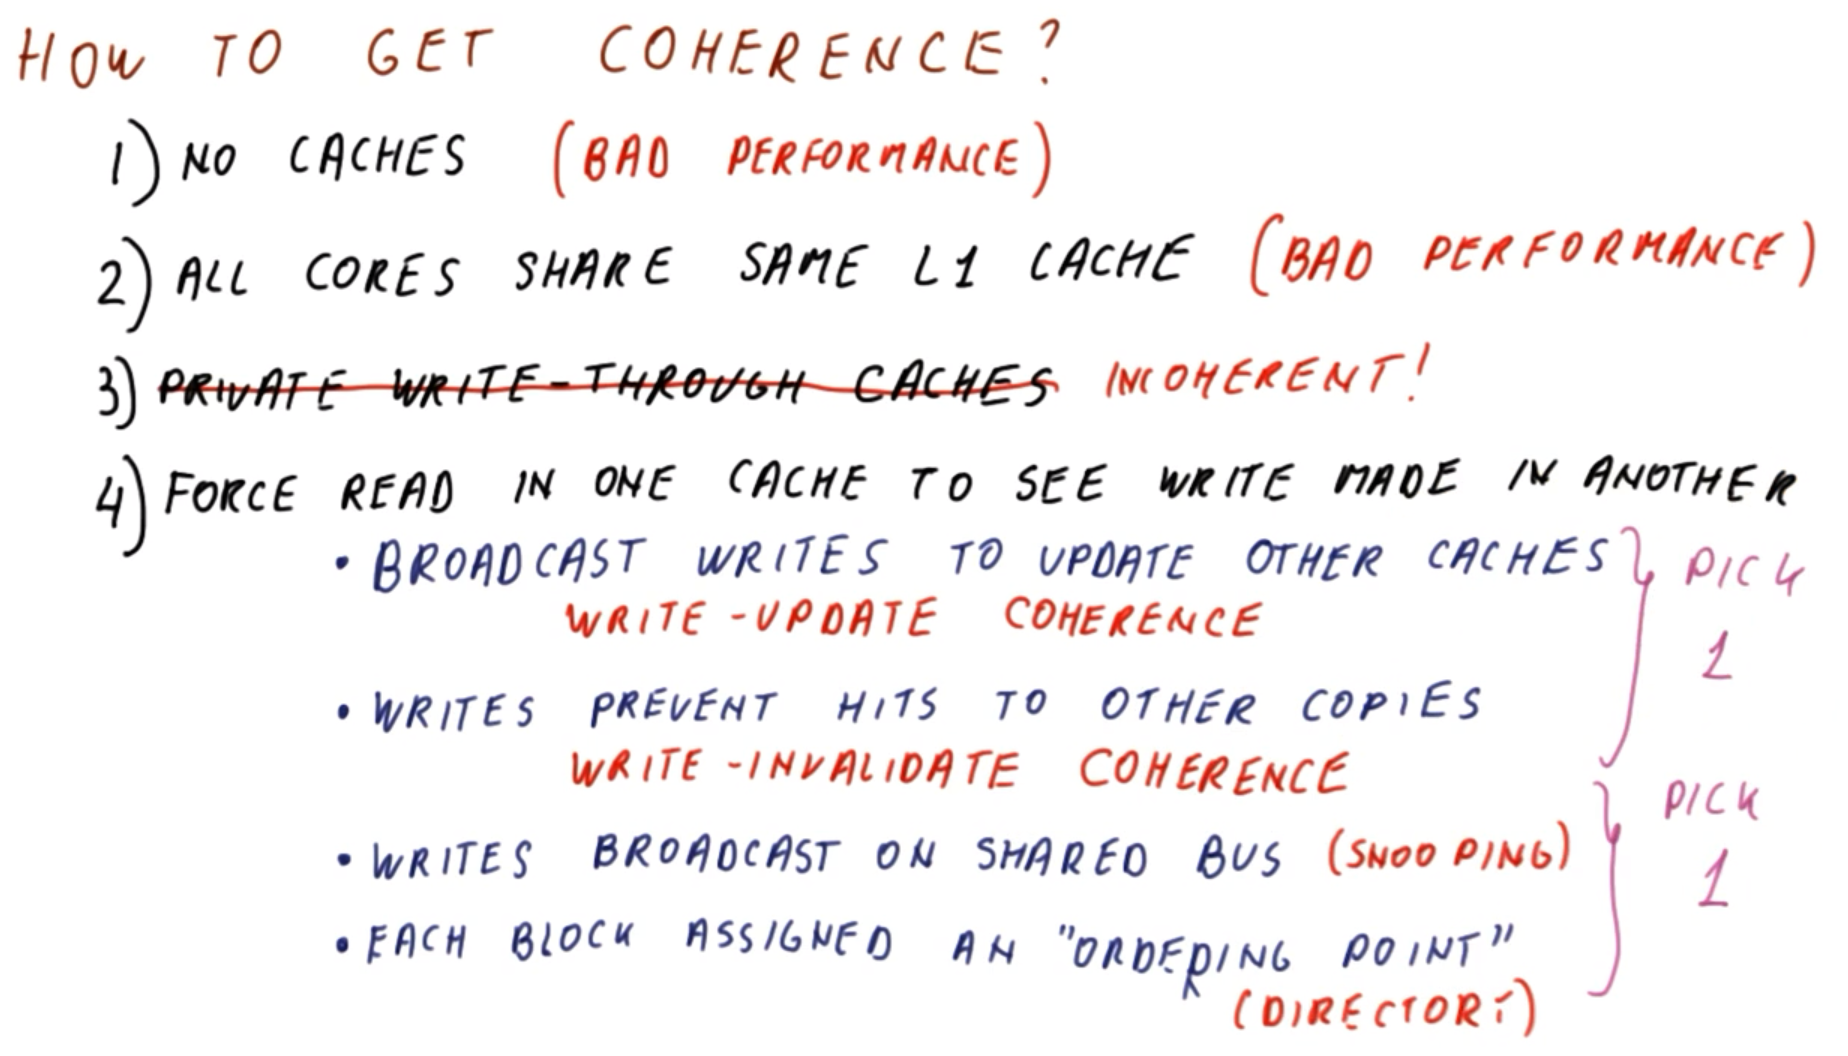 HOW TO GET COHERENCE?
1) NO CACHES (BAD PERFORMANCE)
2) ALL CORES SHARE SAME L1 CACHE (BAD PERFORMANCE)
3) PRIVATE WRITE-THROUGH CACHES INCOHERENT!
4) FORCE READ IN ONE CACHE TO SEE WRITE MADE IN ANOTHER
• BROADCAST WRITES TO UPDATE OTHER CACHES
WRITE-UPDATE COHERENCE
PICK
1
• WRITES PREVENT HITS TO OTHER COPIES
WRITE-INVALIDATE COHERENCE
• WRITES BROADCAST ON SHARED BUS (SNOOPING)
• EACH BLOCK ASSIGNED AN "ORDERING POINT"
(DIRECTORY)
PICK
1